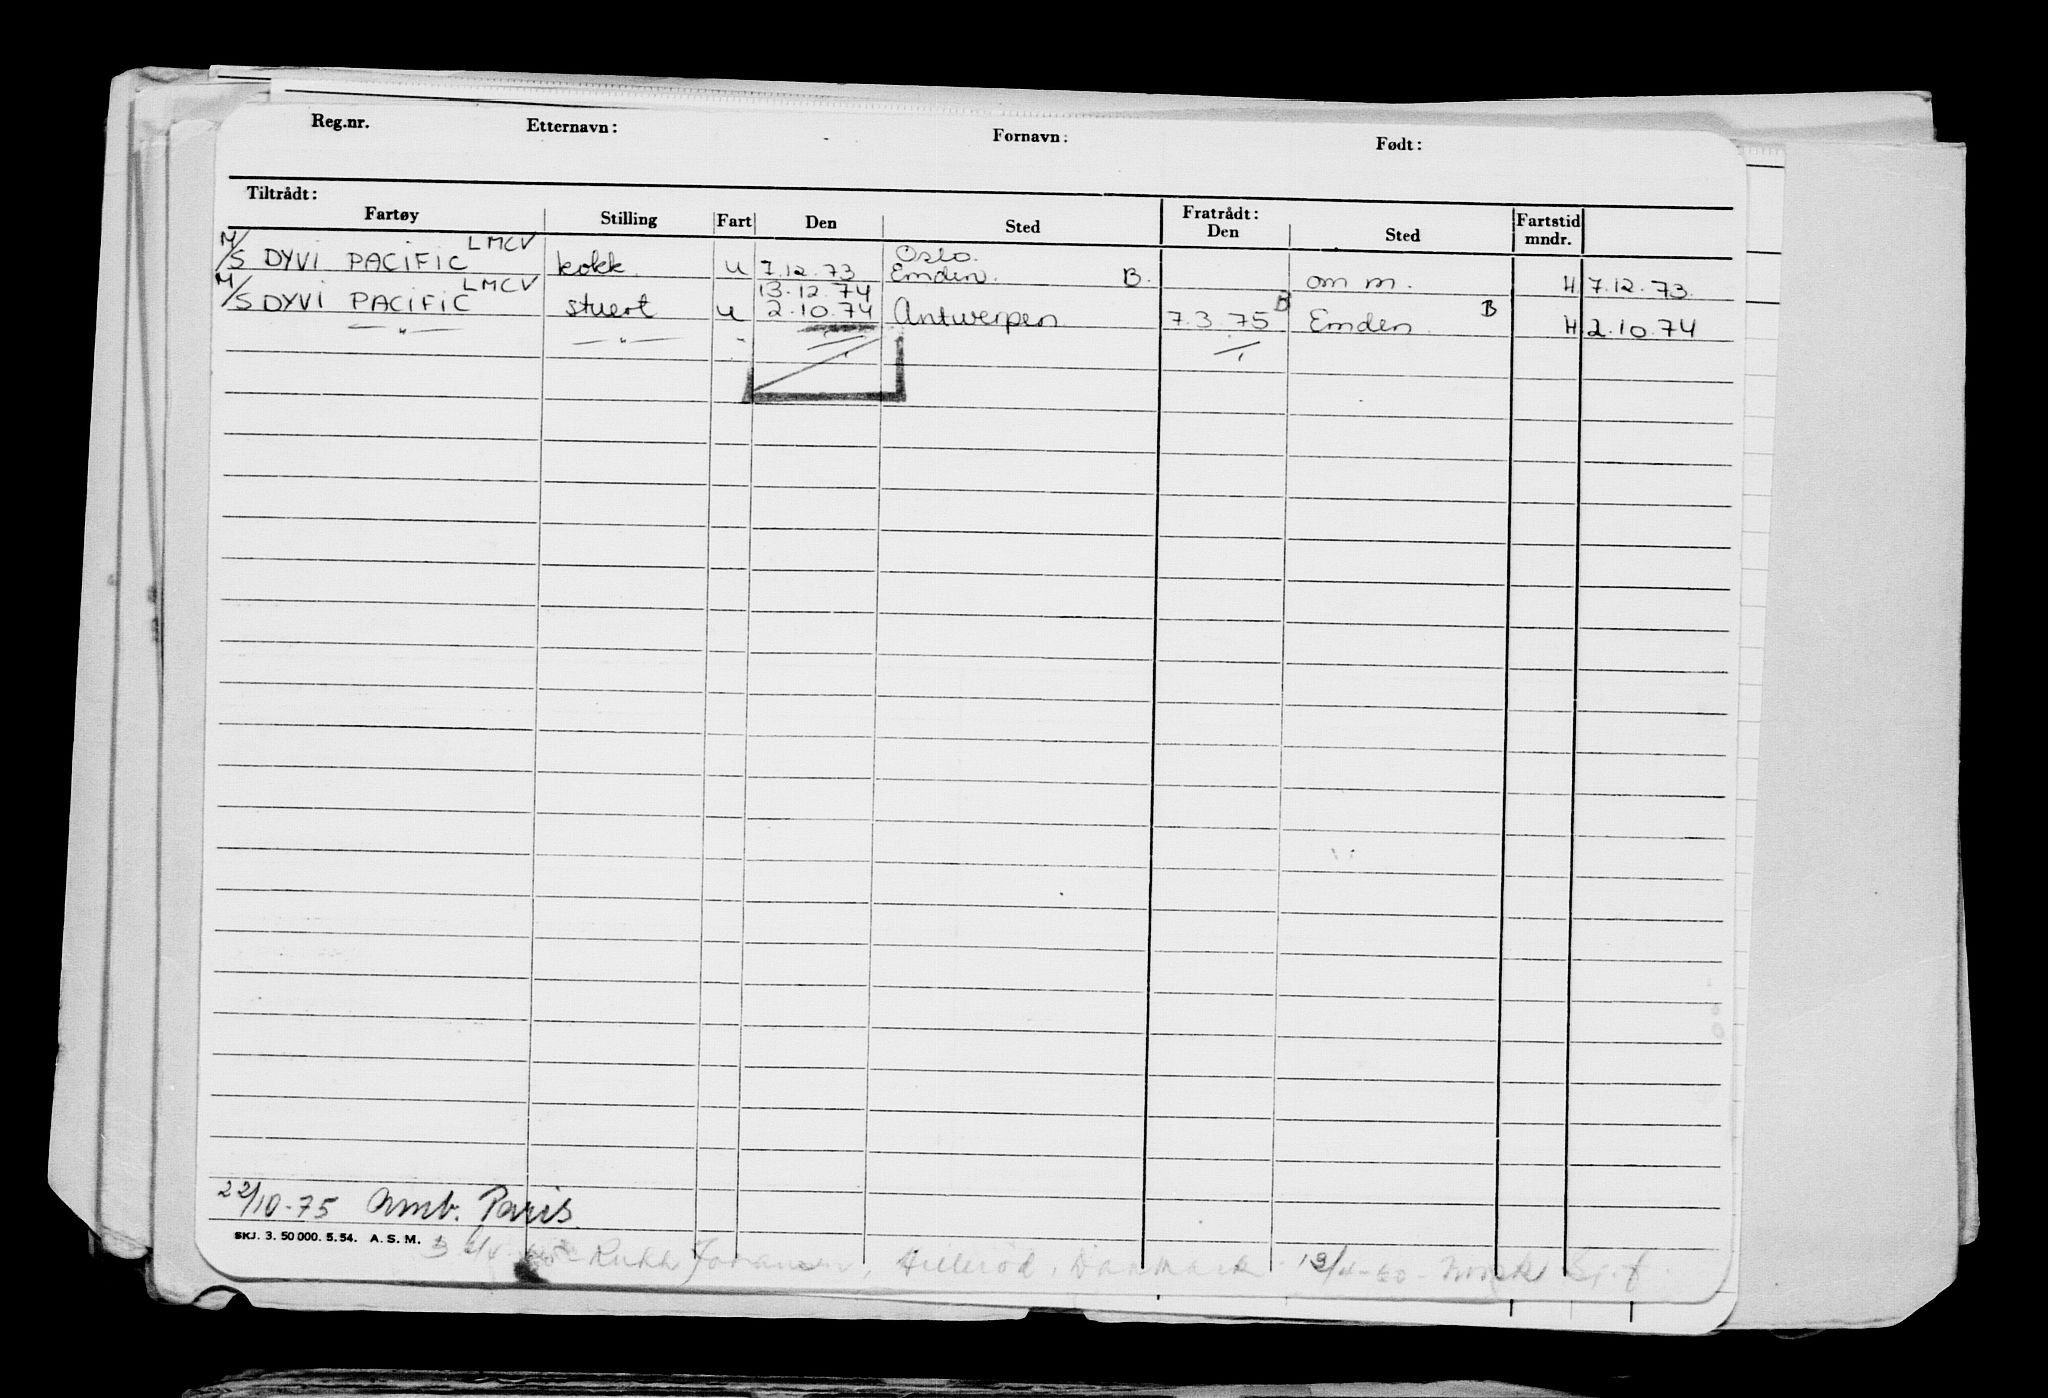 Reg.nr. Etternavn: Fornavn: Født:
Tiltrådt: Fratrådt:
Fartøy Stilling Fart Den Sted Den Sted Fartstid mndr.
M/S DYVI PACIFIC LMCV kokk u 7.12.73 Oslo. om m. H 7.12.73.
13.12.74 Emden. B.
M/S DYVI PACIFIC LMCV stuert u 2.10.74 Antwerpen 7.3.75 B Emden. B H 2.10.74
— " — — " — "
22/10-75 Amb. Paris.
SKJ. 3. 50 000. 5. 54. A. S. M.
Johansen, Hillerød, Danmark. 13/4-60 - Norsk Sj.f.